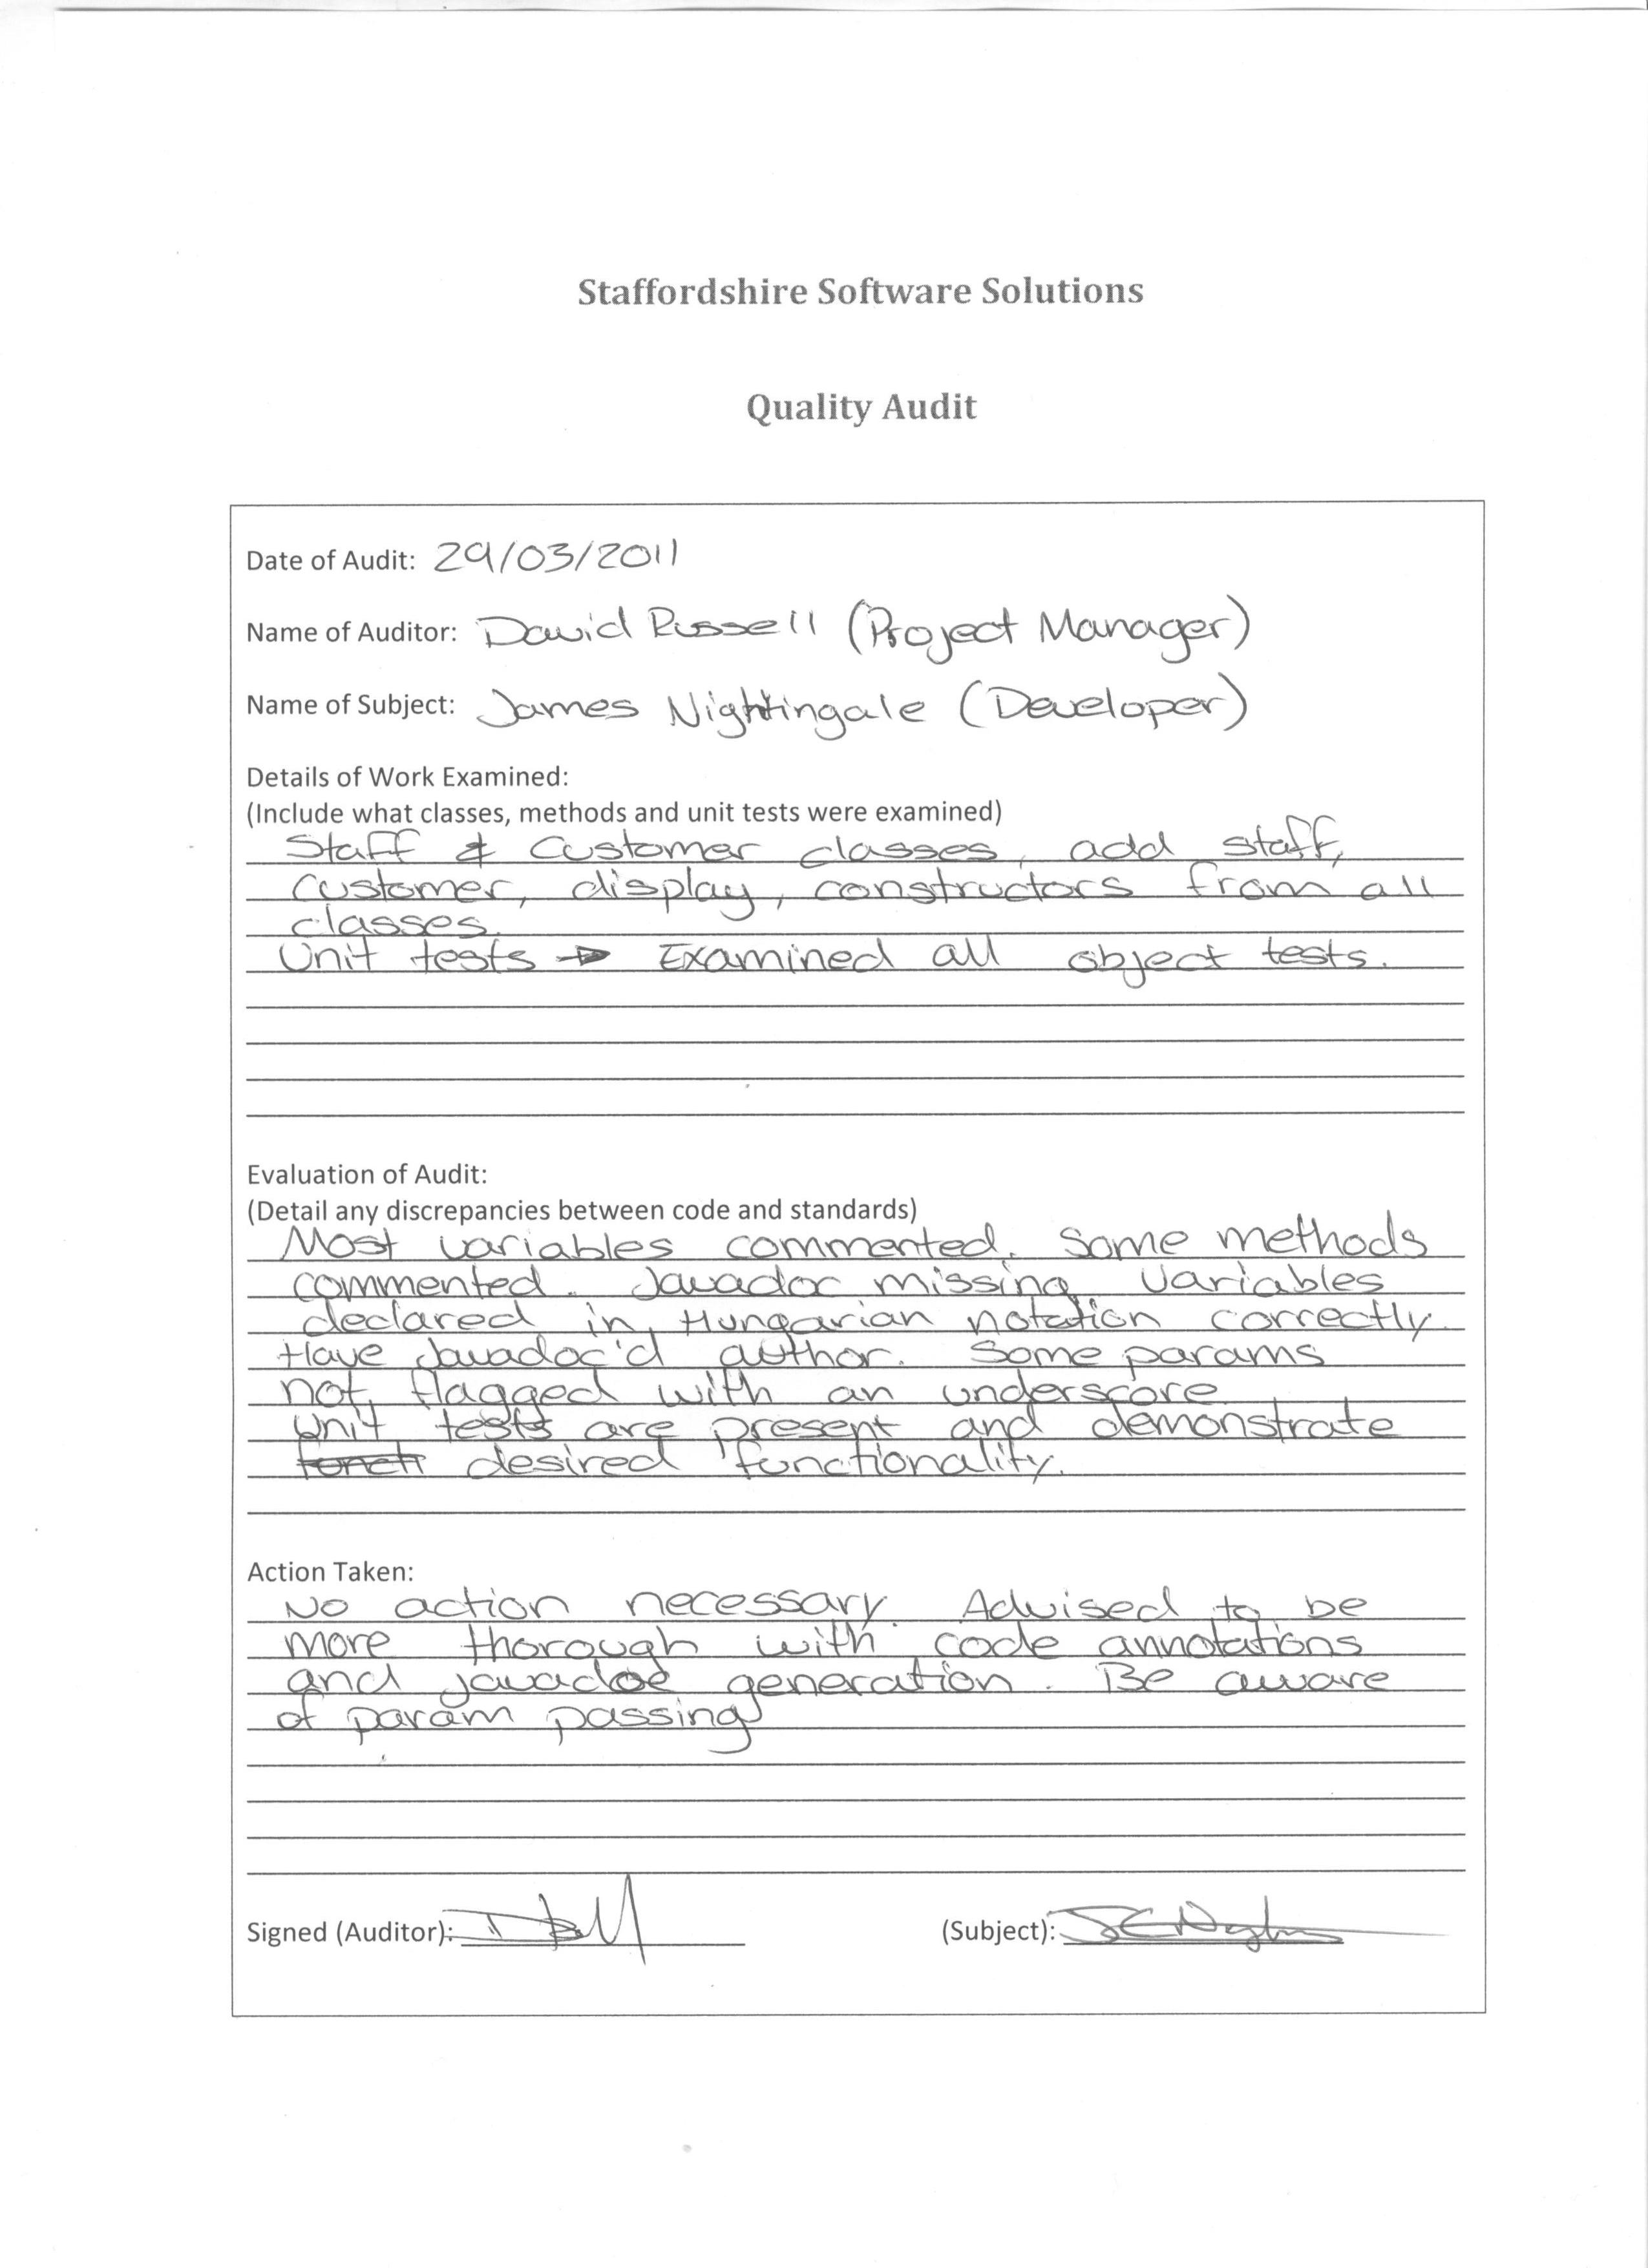 Staffordshire Software Solutions
Quality Audit
Date of Audit: 29/03/2011
Name of Auditor: David Russell (Project Manager)
Name of Subject: James Nightingale (Developer)
Details of Work Examined:
(Include what classes, methods and unit tests were examined)
Staff & Customer classes, add staff,
customer, display, constructors from all
classes.
Unit tests → Examined all object tests.
Evaluation of Audit:
(Detail any discrepancies between code and standards)
Most variables commented. Some methods
commented. Javadoc missing. Variables
declared in Hungarian notation correctly.
Have Javadoc'd author. Some params
not flagged with an underscore
Unit tests are present and demonstrate
desired functionality.
Action Taken:
No action necessary. Advised to be
more thorough with code annotations
and javadoc generation. Be aware
of param passing
Signed (Auditor):
(Subject):